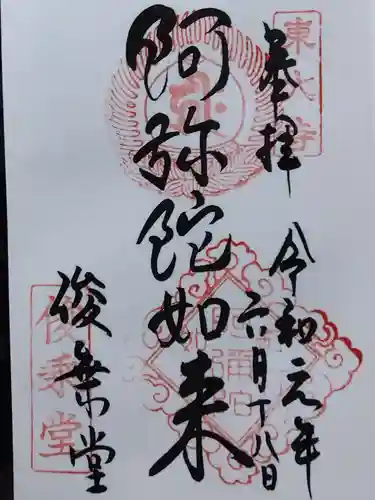 奉拝
令和元年
六月十八日
阿弥陀如来
俊乗堂
東大寺
俊乗堂